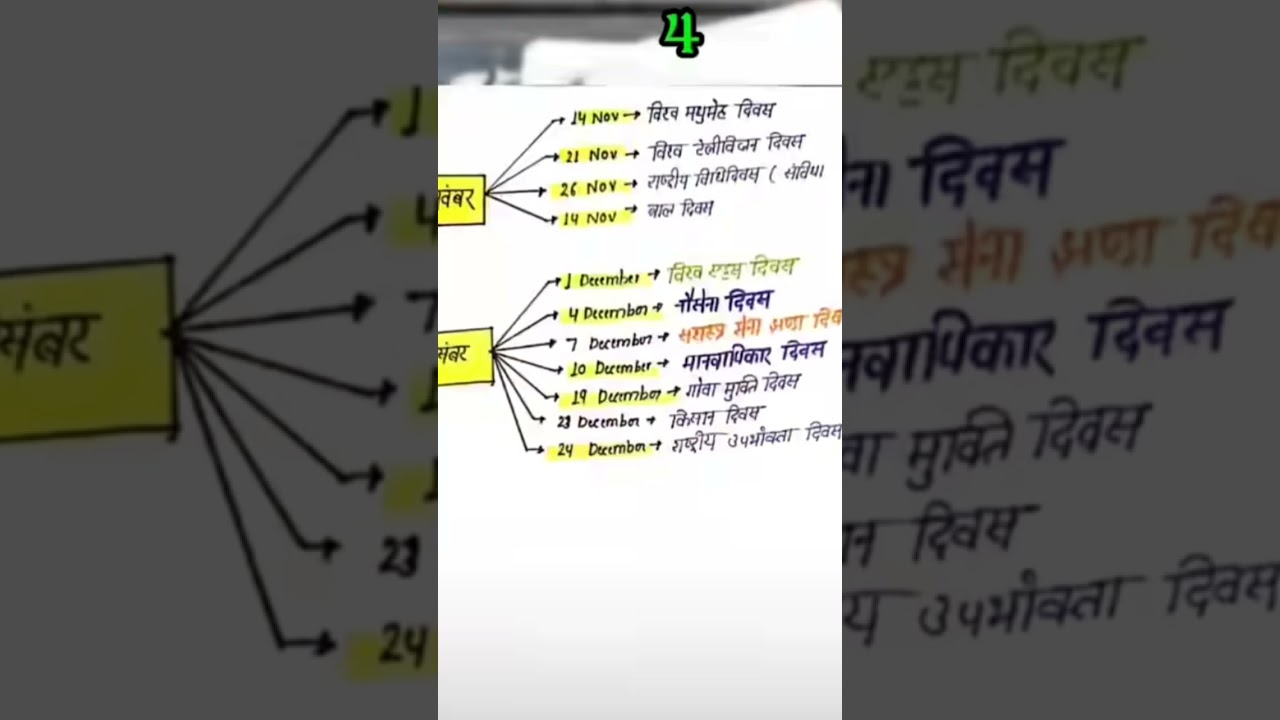 4
14 Nov → विश्व मधुमेह दिवस
21 Nov → विश्व टेलीविजन दिवस
26 Nov → राष्ट्रीय विधिदिवस (
14 Nov → बाल दिवस
1 December → विश्व एड्स दिवस
4 December → नौसेना दिवस
7 December → सशस्त्र सेना झण्डा
10 December → मानवाधिकार दिवस
19 December → गोवा मुक्ति दिवस
23 December → किसान दिवस
24 December → राष्ट्रीय उपभोक्ता दिवस